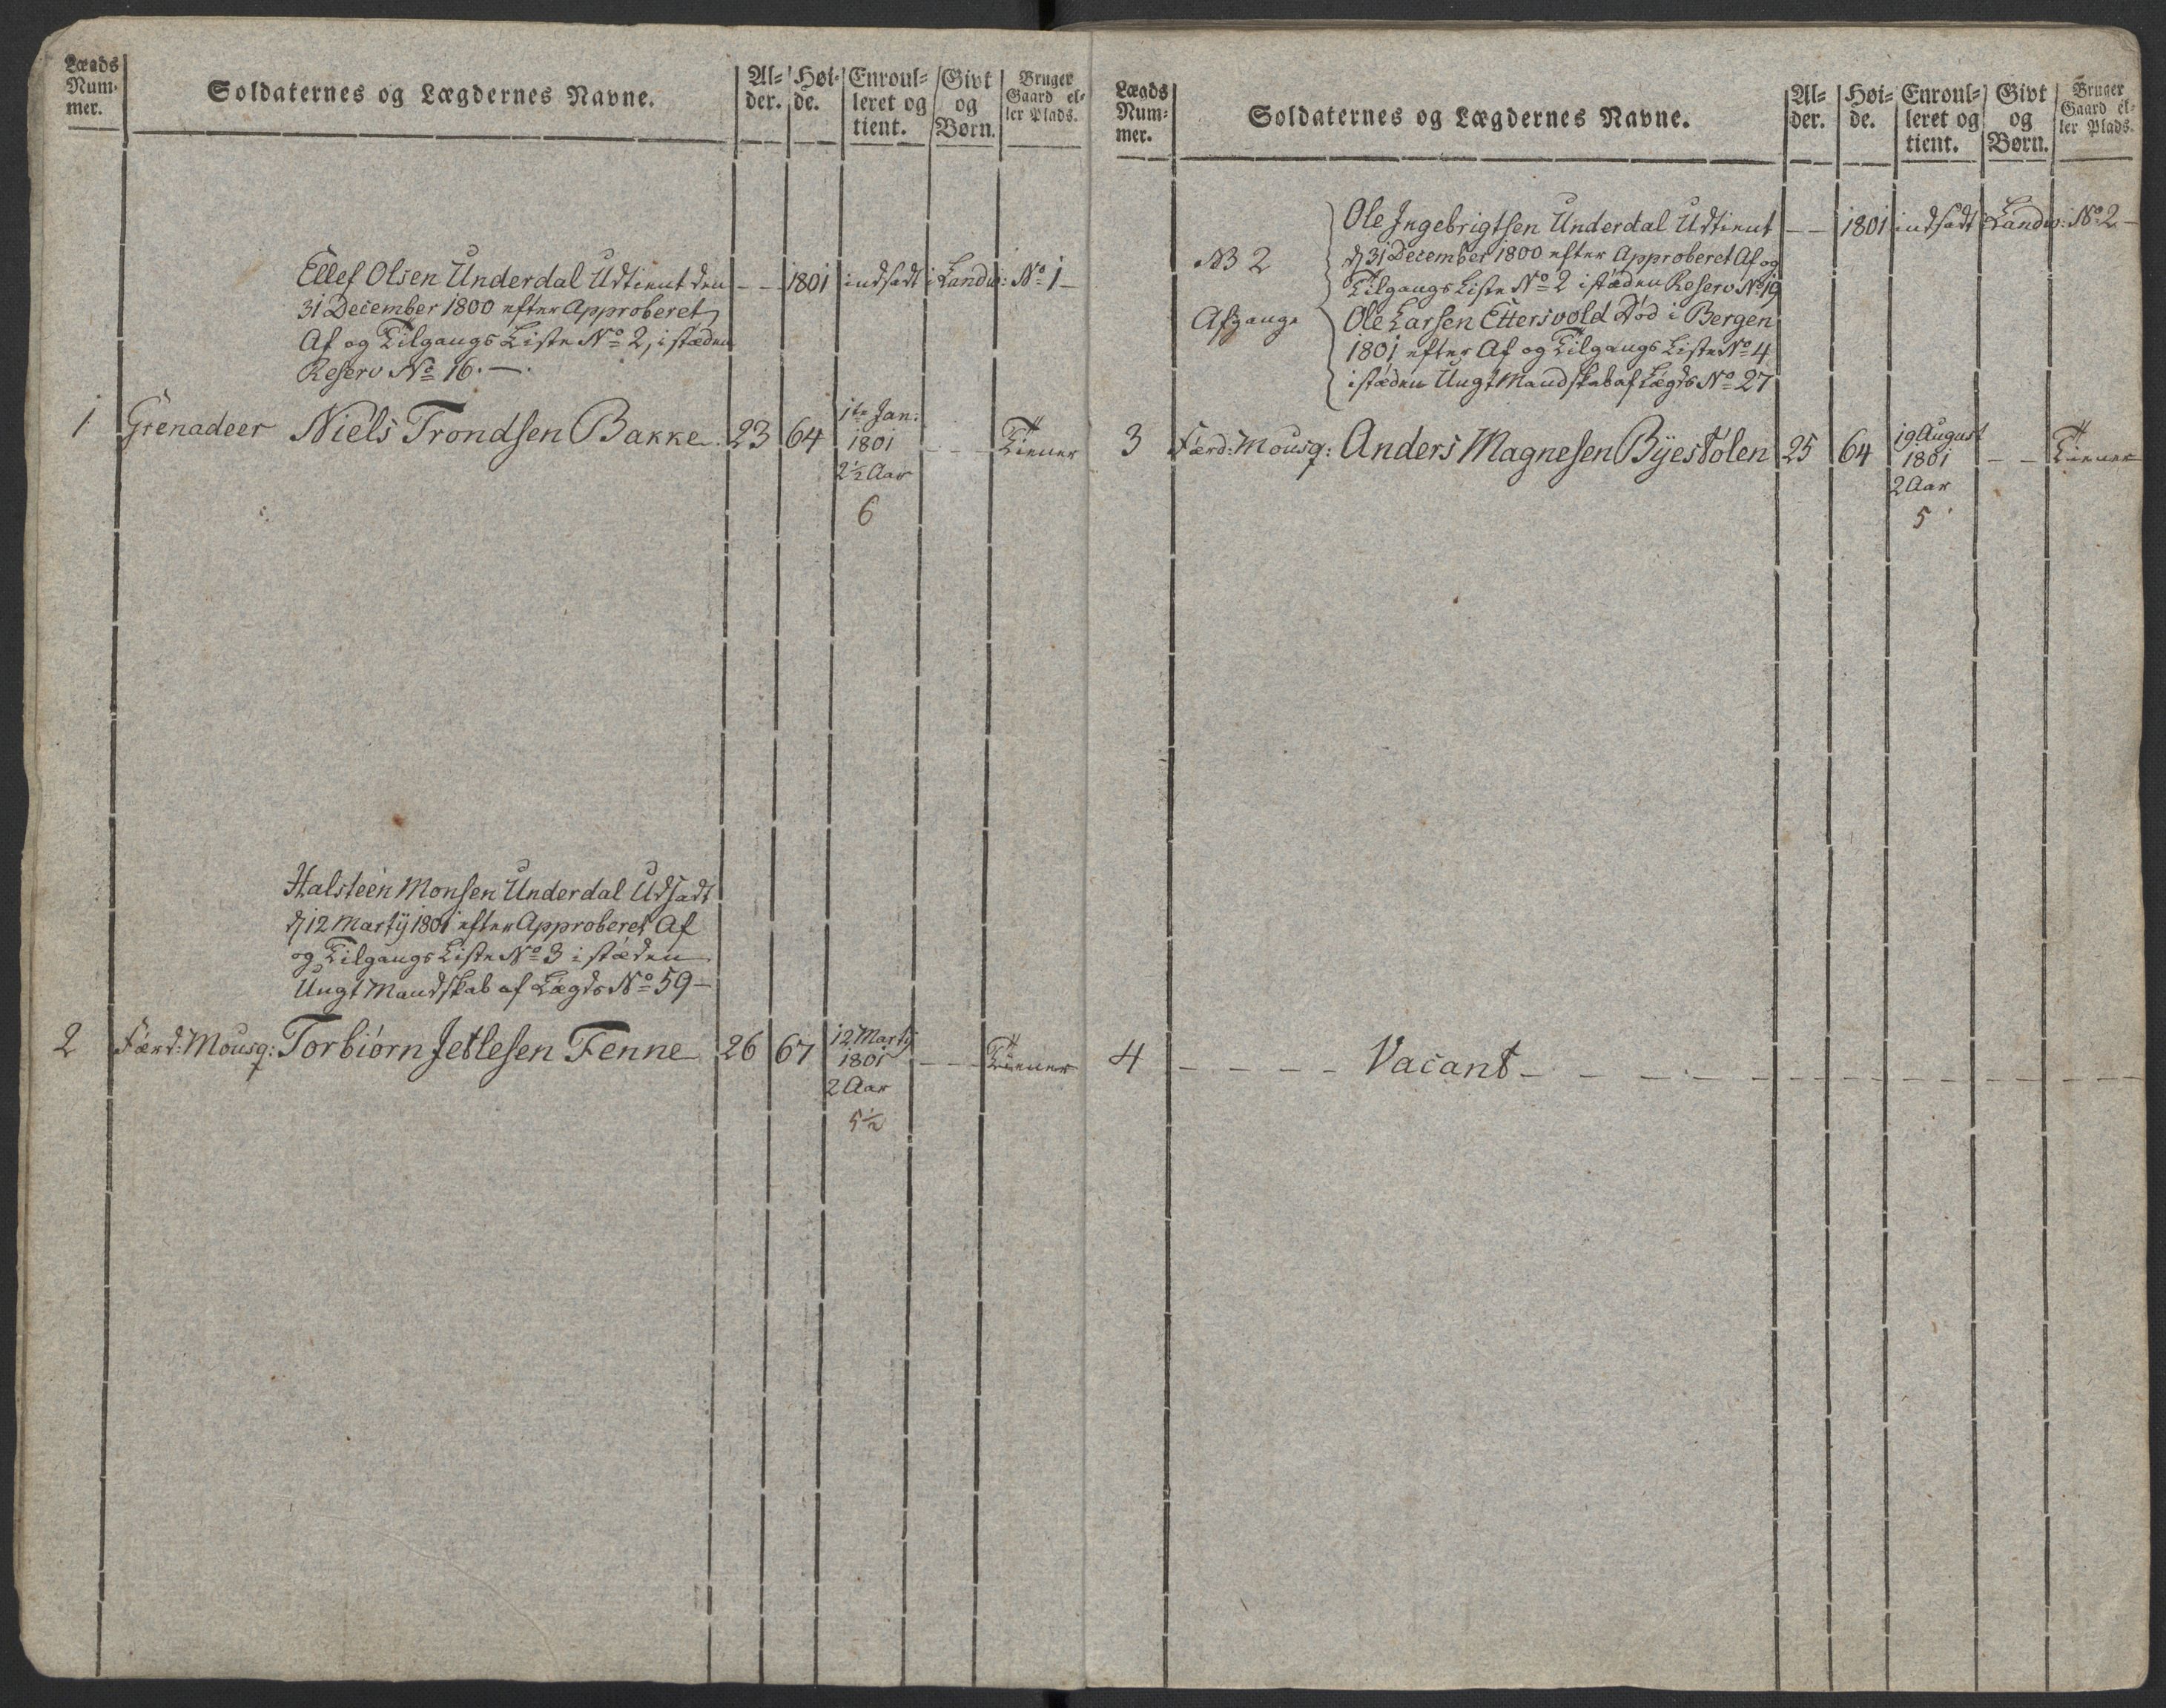 Lægds
Num-
mer.
Soldaternes og Lægdernes Navne.
Al-
der.
Høi-
de.
Enroul-
leret og
tient.
Givt
og
Børn.
Bruger
Gaard el-
ler Plads.
Ellef Olsen Underdal Udtient den - - 1801 indsadt i Landw: No 1 -
31 December 1800 efter Approberet
Af og Tilgangs Liste No 2, i stæden
Reserv No 16. -
1 Grenadeer Niels Trondsen Bakke 23 64 1te Jan: 1801 - - - Tiener
2 1/2 Aar
6
Halsteen Monsen Underdal Udsadt
d 12 Martij 1801 efter Approberet Af
og Tilgangs Liste No 3 i stæden
Ungt Mandskab af Lægds No 59 -
2 Færd: Mousq: Torbiørn Jetlesen Fenne 26 67 12 Martij 1801 - - - Tiener
2 Aar
5 1/2
Lægds
Num-
mer.
Soldaternes og Lægdernes Navne.
Al-
der.
Høi-
de.
Enroul-
leret og
tient.
Givt
og
Børn.
Bruger
Gaard el-
ler Plads.
Ole Ingebrigtsen Underdal Udtient - - 1801 indsadt i Landw: No 2 -
NB 2 d 31 December 1800 efter Approberet Af og
Tilgangs Liste No 2 i stæden Reserv No 19
Afgange Ole Larsen Ettersvold Død i Bergen
1801 efter Af og Tilgangs Liste No 4
i stæden Ungt Mandskab af Lægds No 27
3 Færd: Mousq: Anders Magnesen Byestølen 25 64 19 August 1801 - - Tiener
2 Aar
5
4 - - - - Vacant - - - -